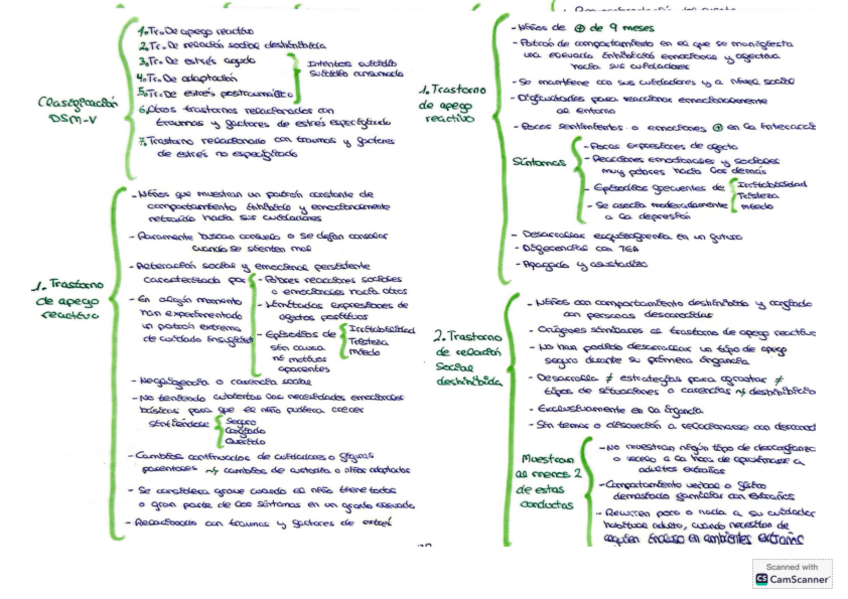 Clasificación
DSM-V
1. Tr. De apego reactivo
2. Tr. De relación social deshinibida
3. Tr. De estrés agudo
4. Tr. De adaptación
5. Tr. De estrés postraumático
Intentos suicidio
suicidio consumado
6. Otros trastornos relacionados con
traumas y factores de estrés especificado
7. Trastorno relacionado con traumas y factores
de estrés no especificado
1. Trastorno
de apego
reactivo
- Niños que muestran un patrón constante de
comportamiento inhibido y emocionalmente
retraído hacia sus cuidadores
- Raramente buscan consuelo o se dejan consolar
cuando se sienten mal
- Alteración social y emocional persistente
caracterizada por
- Pobres reacciones sociales
o emocionales hacia otros
- Limitadas expresiones de
afectos positivos
- Episodios de
sin causa
ni motivos
aparentes
Irritabilidad
Tristeza
miedo
- En algún momento
han experimentado
un patrón extremo
de cuidado insuficiente
- Negligencia o carencia social
- No teniendo cubiertas las necesidades emocionales
básicas para que el niño pudiera crecer
sintiéndose
Seguro
Cuidado
Querido
- Cambios continuados de cuidadores o figuras
parentales cambios de custodia o niños adoptados
- Se considera grave cuando el niño tiene todos
o gran parte de los síntomas en un grado elevado
- Relacionado con traumas y factores de estrés
1. Trastorno
de apego
reactivo
- Niños de ⊕ de 9 meses
- Patrón de comportamiento en el que se manifiesta
una elevada inhibición emocional y afectiva
hacia sus cuidadores
- Se mantiene con sus cuidadores y a nivel social
- Dificultades para reaccionar emocionalmente
al entorno
- Pocos sentimientos o emociones ⊕ en la
Síntomas
- Pocas expresiones de afecto
- Reacciones emocionales y sociales
muy pobres hacia los demás
- Episodios frecuentes de
Irritabilidad
Tristeza
miedo
- Se asocia moderadamente
a la depresión
- Desarrollar esquizofrenia en un futuro
- Diferencias con TEA
- Apagado y asustadizo
2. Trastorno
de relación
Social
deshinibida
- Niños con comportamiento deshinibido y confiado
con personas desconocidas
- Orígenes similares al trastorno de apego reactivo
- No han podido desarrollar un tipo de apego
seguro durante su primera infancia
- Desarrolla ≠ estrategias para afrontar ≠
tipos de situaciones o carencias deshibibición
- Exclusivamente en la infancia
- Sin temor o desazón a relacionarse con
Muestran
al menos 2
de estas
conductas
- No muestran ningún tipo de desconfianza
o recelo a la hora de aproximarse a
adultos extraños
- Comportamiento verbal o físico
demasiado familiar con extraños
- Recurren poco o nada a su cuidador
habitual adulto, cuando necesitan de
alguien incluso en ambientes extraños
Scanned with
CS CamScanner